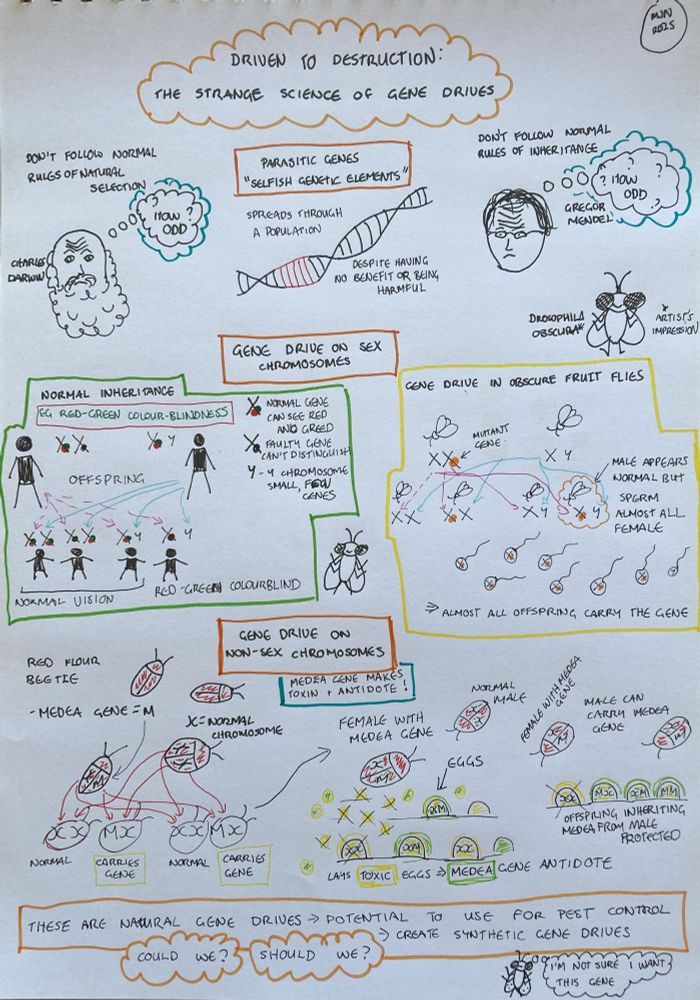 MWN
2025
DRIVEN TO DESTRUCTION:
THE STRANGE SCIENCE OF GENE DRIVES
DON'T FOLLOW NORMAL
RULES OF NATURAL
SELECTION
HOW ?
ODD
CHARLES
DARWIN
PARASITIC GENES
"SELFISH GENETIC ELEMENTS"
SPREADS THROUGH
A POPULATION
DESPITE HAVING
NO BENEFIT OR BEING
HARMFUL
DON'T FOLLOW NORMAL
RULES OF INHERITANCE
? HOW ?
ODD
GREGOR
MENDEL
DROSOPHILA
OBSCURA*
* ARTIST'S
IMPRESSION
GENE DRIVE ON SEX
CHROMOSOMES
NORMAL INHERITANCE
EG RED-GREEN COLOUR-BLINDNESS
X X
X Y
OFFSPRING
X X X X X Y X Y
NORMAL VISION
RED-GREEN COLOURBLIND
X NORMAL GENE
CAN SEE RED
AND GREED
X FAULTY GENE
CAN'T DISTINGUISH
Y - Y CHROMOSOME
SMALL, FEW
GENES
GENE DRIVE IN OBSCURE FRUIT FLIES
MUTANT
GENE
X X
X Y
X X X X X Y X Y
MALE APPEARS
NORMAL BUT
SPERM
ALMOST ALL
FEMALE
⇒ ALMOST ALL OFFSPRING CARRY THE GENE
GENE DRIVE ON
NON-SEX CHROMOSOMES
MEDEA GENE MAKES
TOXIN + ANTIDOTE!
RED FLOUR
BEETLE
- MEDEA GENE = M
X = NORMAL
CHROMOSOME
X X MX X X MX
NORMAL
CARRIES
GENE
NORMAL
CARRIES
GENE
FEMALE WITH
MEDEA GENE
NORMAL
MALE
EGGS
XM
XX XM XX
LAYS TOXIC EGGS ⇒ MEDEA GENE ANTIDOTE
FEMALE WITH MEDEA
GENE
MALE CAN
CARRY MEDEA
GENE
XX MX XM MM
OFFSPRING INHERITING
MEDEA FROM MALE
PROTECTED
THESE ARE NATURAL GENE DRIVES → POTENTIAL TO USE FOR PEST CONTROL
→ CREATE SYNTHETIC GENE DRIVES
COULD WE?
SHOULD WE?
I'M NOT SURE I WANT
THIS GENE